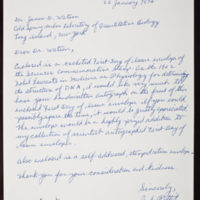 22 January 1976
Dr. James D. Watson
Cold Spring Harbor Laboratory of Quantitative Biology
Long Island, New York
Dear Dr. Watson,
Enclosed is a cacheted First Day of Issue envelope of
the Commemorative Stamp. As the 1962
Nobel Laureate in Medicine or Physiology for determining
the structure of DNA, I would like to
have your handwritten autograph on the front of this
cacheted First Day of Issue envelope. If you could
possibly spare the time, it would be greatly appreciated.
The envelope would be a highly prized addition to
my collection of scientist autographed First Day of
Issue envelopes.
Also enclosed is a self-addressed, stamped return envelope.
Thank you for your consideration and kindness.
Sincerely,